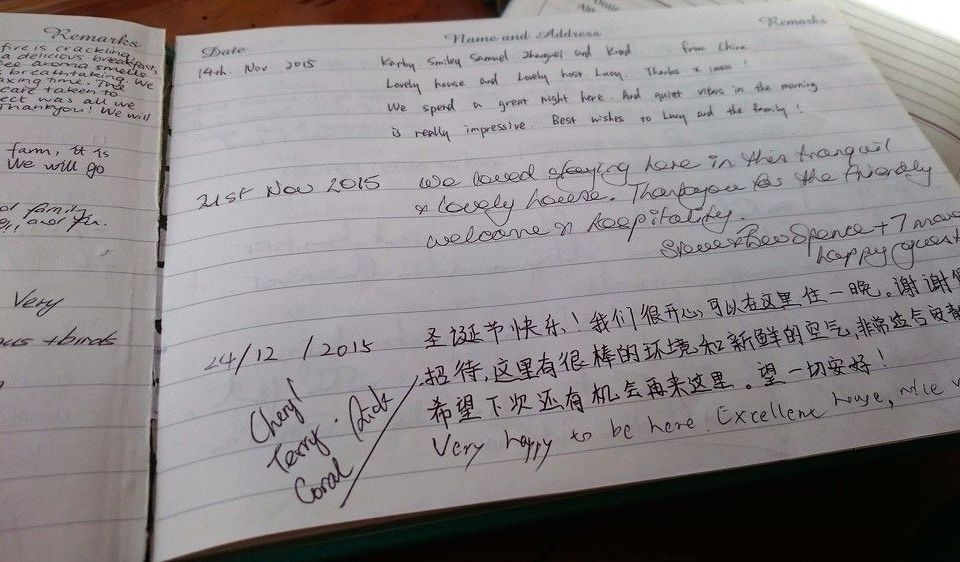 Remarks
fire is crackling
a delicious breakfast,
aroma smells
breathtaking. We
time. The
care taken to
ect was all we
Thankyou! We will
farm, it is
We will go
family
Very
+ birds
Date
Name and Address
Remarks
14th. Nov 2015
Smiley Samuel Zhangwei and from China
Lovely house and Lovely host Lucy. Thanks x 10000 !
We spend a great night here. And quiet vibes in the morning
is really impressive. Best wishes to Lucy and the family !
21st Nov 2015
We loved staying here in this tranquil
& lovely house. Thankyou for the friendly
welcome & hospitality.
Steve & Bev Spence + 7
happy guest
24/12 / 2015
圣诞节快乐！我们很开心可以在这里住一晚。谢谢
招待，这里有很棒的环境和新鲜的空气，非常适合
希望下次还有机会再来这里。望一切安好！
Very happy to be here. Excellent house, nice
Cheryl
Terry. Rick
Coral